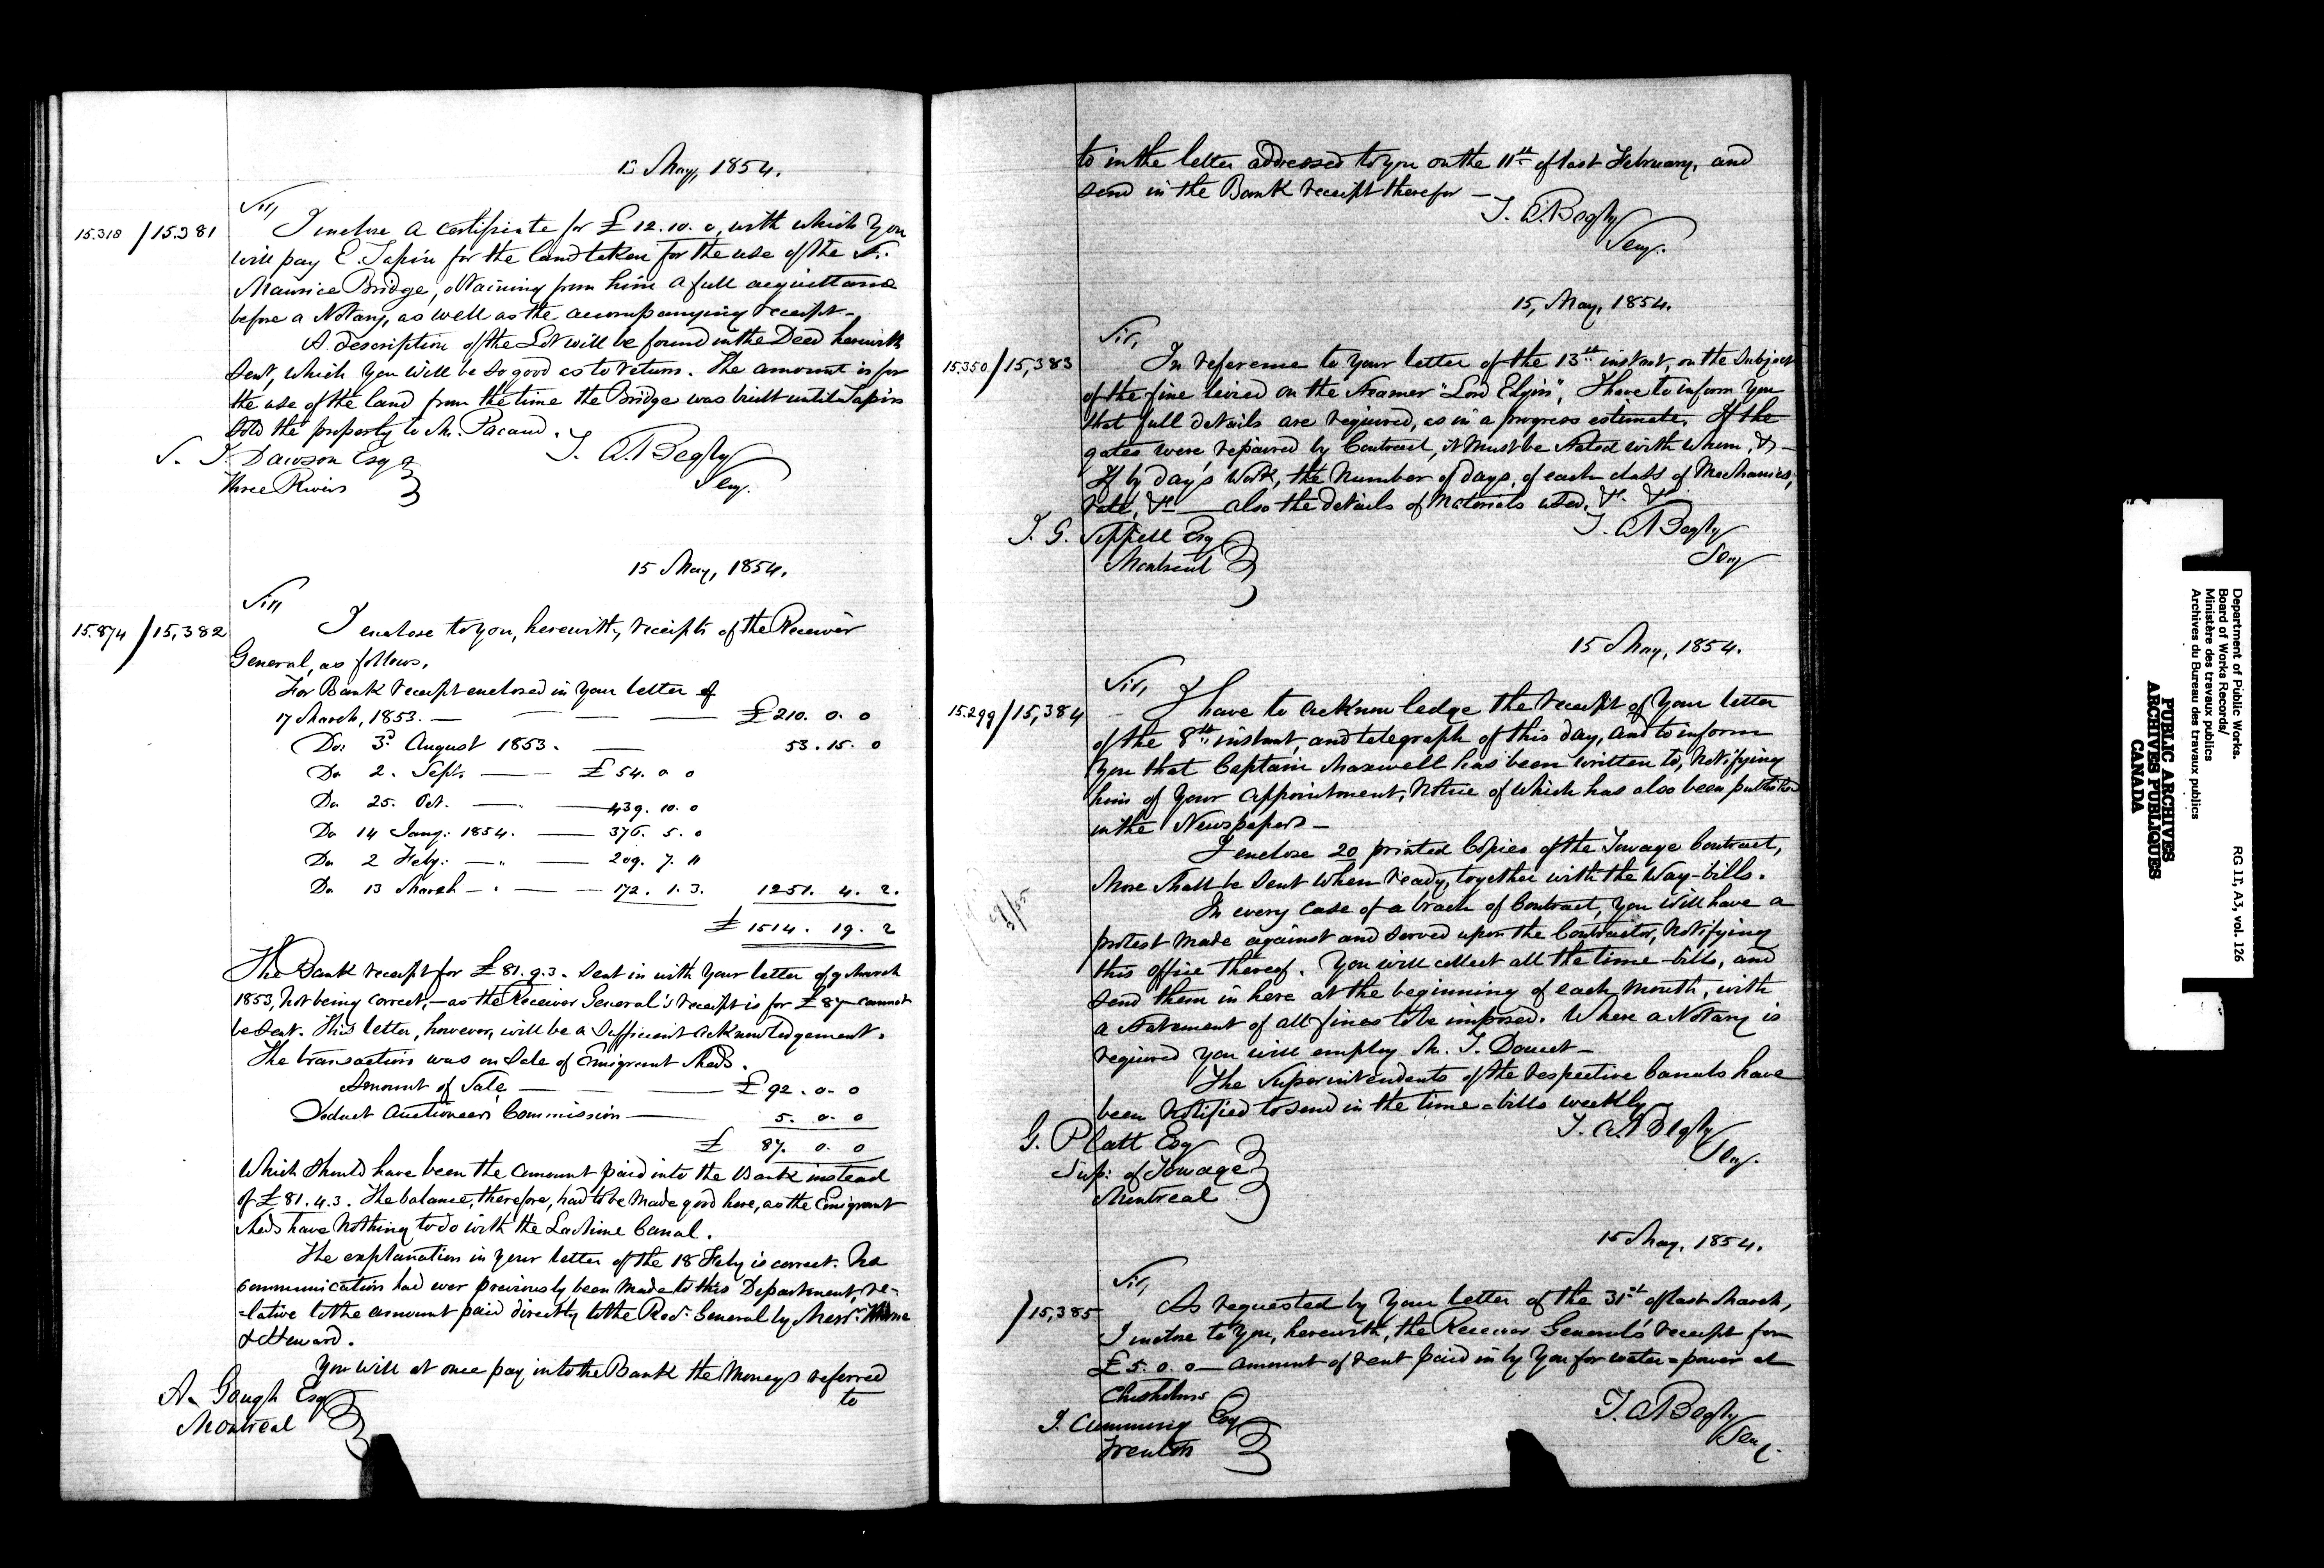 May, 1854.
Sir,
15.318 / 15.381
I enclose a certificate for £12.10.0, with which you
will pay E. Lapin for the land taken for the use of the St.
Maurice Bridge, obtaining from him a full acquittance
before a Notary, as well as the accompanying receipt.
A description of the Lot will be found in the Deed herewith
sent, which you will be so good as to return. The amount is for
the use of the land from the time the Bridge was built until Lapin
sold the property to Mr. Pacaud.
S. J. Dawson Esq
Three Rivers
T. A. Begly
Secy.
15 May, 1854.
Sir,
15.874 / 15,382
I enclose to you, herewith, receipts of the Receiver
General, as follows,
For Bank receipt enclosed in your letter of
17 March, 1853. — £210. 0. 0
Do: 3d August 1853. — 53. 15. 0
Do 2. Sept. — £54. 0 0
Do 25. Oct. — 439. 10. 0
Do 14 Jany: 1854. — 376. 5. 0
Do 2 Feby: — " — 209. 7. 11
Do 13 March — " — 172. 1. 3. 1251. 4. 2.
£ 1514. 19. 2
The Bank receipt for £81.9.3. sent in with your letter of 9 March
1853, not being correct, — as the Receiver General's receipt is for £87 — cannot
be sent. This letter, however, will be a sufficient acknowledgement.
The transaction was on sale of Emigrant Sheds.
Amount of Sale — £92. 0. 0
Deduct Auctioneers Commission — 5. 0. 0
£ 87. 0. 0
Which should have been the amount paid into the Bank instead
of £81.4.3. The balance, therefore, had to be made good here, as the Emigrant
Sheds have nothing to do with the Lachine Canal.
The explanation in your letter of the 18 Feby is correct. No
communication had ever previously been made to this Department, re-
=lative to the amount paid directly to the Recr. General by Messrs.
& Heward.
You will at once pay into the Bank the moneys referred
to
A. Gough Esq
Montreal
to in the letter addressed to you on the 11th of last February, and
send in the Bank receipt therefor —
T. A. Begly
Secy.
15, May, 1854.
Sir,
15.350 / 15,383
In reference to your letter of the 13th instant, on the subject
of the fine levied on the Steamer "Lord Elgin", I have to inform you
that full details are required, as in a progress estimate. If the
gates were repaired by Contract, it must be stated with whom, &c —
If by days work, the number of days, of each class of Mechanics,
rate, &c — also the details of materials used, &c &c
J. G. Sippell Esq
Montreal
T. A. Begly
Secy
15 May, 1854.
Sir,
15.299 / 15,384
I have to acknowledge the receipt of your letter
of the 8th instant, and telegraph of this day, and to inform
you that Captain Maxwell has been written to, notifying
him of your appointment, notice of which has also been published
in the Newspapers —
I enclose 20 printed Copies of the Towage Contract,
More shall be sent when ready, together with the Way-bills.
In every case of a breach of Contract, you will have a
protest made against and served upon the Contractor, notifying
this office thereof. You will collect all the time-bills, and
send them in here at the beginning of each month, with
a statement of all fines to be imposed. When a Notary is
required you will employ Mr. T. Doucet —
The Superintendents of the respective Canals have
been notified to send in the time-bills weekly —
G. Platt Esq
Supt: of Towage
Montreal
T. A. Begly
Secy.
15 May, 1854.
Sir,
/ 15,385
As requested by your letter of the 31st of last March,
I enclose to you, herewith, the Receiver General's receipt for
£5. 0. 0 — amount of rent paid in by you for water=power at
Chisholms
J. Cumming Esq
Trenton
T. A. Begly
Secy.
Department of Public Works.
Board of Works Records/
Ministère des travaux publics
Archives du Bureau des travaux publics
RG 11, A3, vol. 126
PUBLIC ARCHIVES
ARCHIVES PUBLIQUES
CANADA